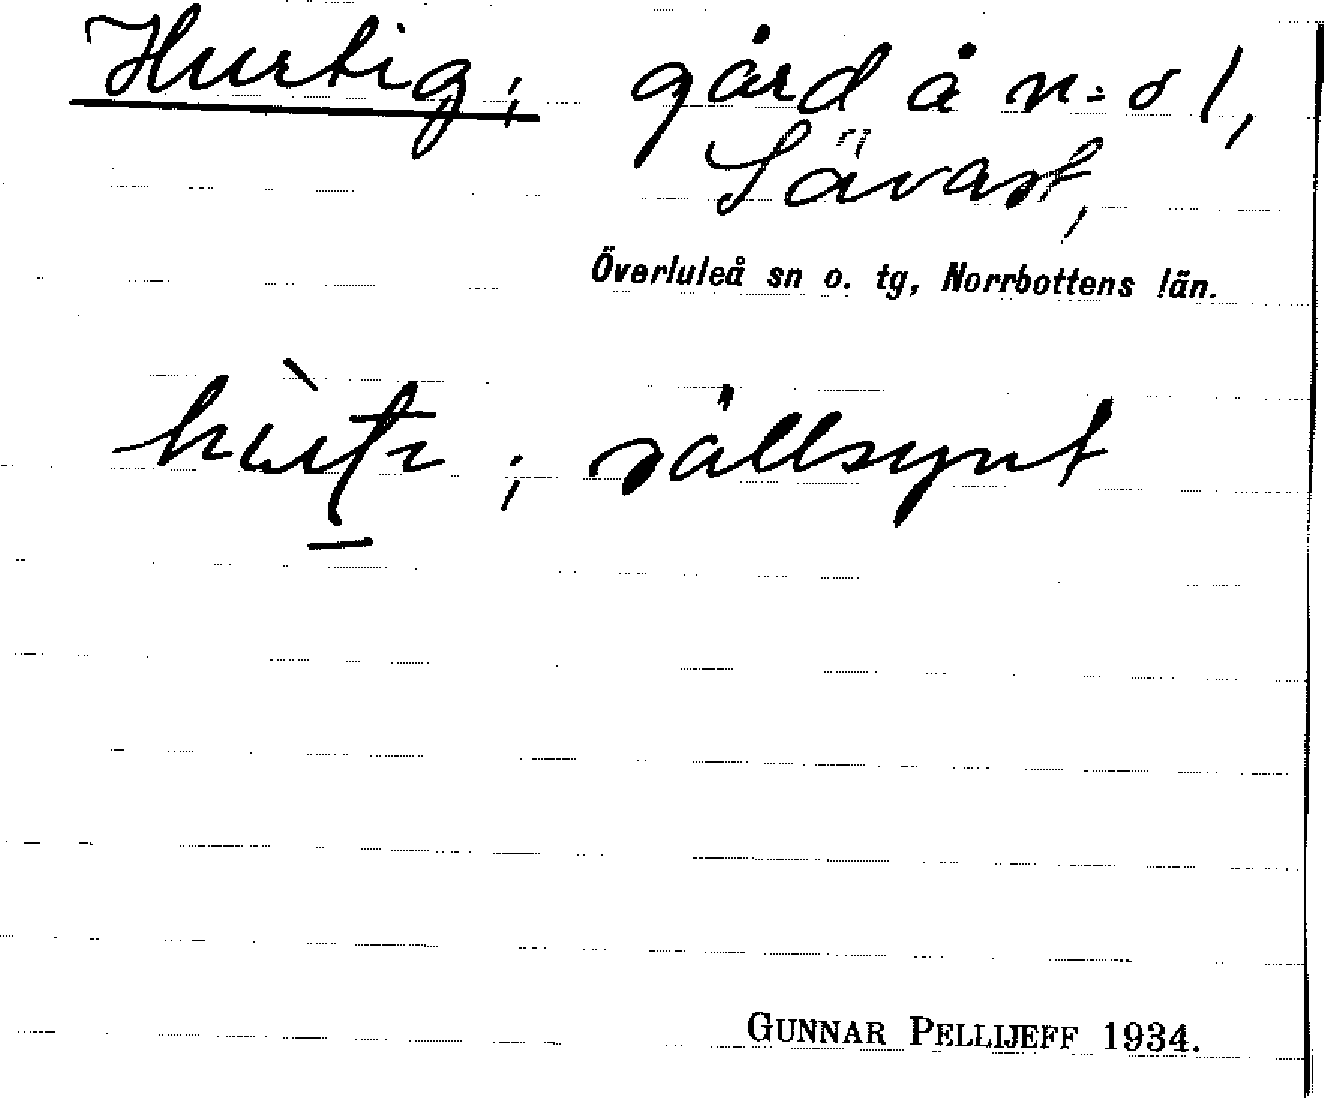 Hurtig; gård å n:o 1,
Sävast,
Överluleå sn o. tg, Norrbottens län.
; sällsynt
GUNNAR PELLIJEFF 1934.